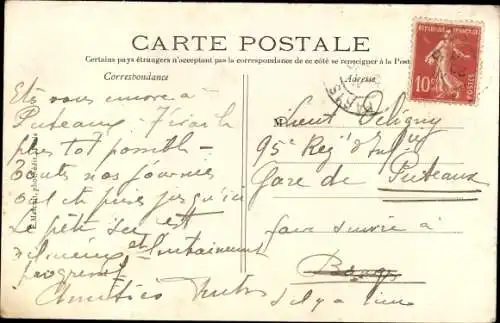 CARTE POSTALE
Certains pays étrangers n'acceptent pas la correspondance de ce côté se renseigner à la Post
Correspondance
Adresse
RÉPUBLIQUE FRANÇAISE
10c
POSTES
Etes vous encore à
Puteaux. J'irai le
plus tot possible -
Toutes nos journées
ont été prises jusqu'ici
Le petit
et
Amitiés
M Lieut Déligny
95e Regt d'Infie
Gare de Puteaux
faire suivre à
Bourges
s'il y a lieu